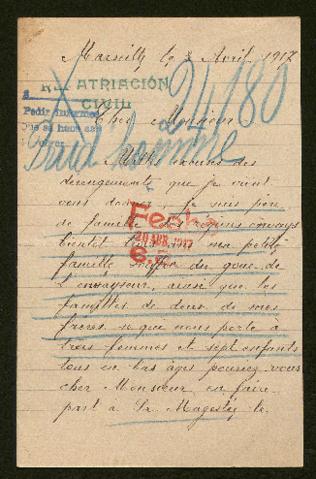 Marseille le 3 Avril 1917
REPATRIACIÓN
CIVIL
24/80
Pedir informes
que se haga
Cher Monsieur
Mille excuses des
derengements que je vient
vous donner, je suis père
de famille des régions envays
Fecha
20 ABR. 1917
bientôt ma petite
famille souffre du goue de
l'envayseur, ainsi que les
familles de deux de mes
frères se que nous porte à
trois femmes et sept enfants
tous en bas âges pouriez vous
cher Monsieur en faire
part a Sa Magesty le